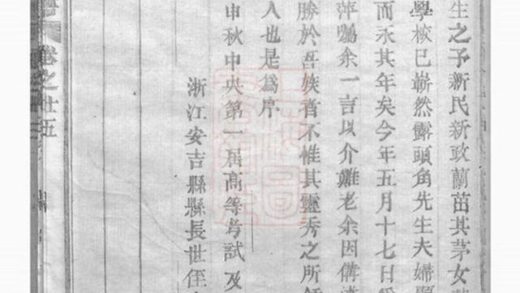 生之予新民新政蘭苗其茅女
學校已嶄然露頭角先生夫婦
而永其年矣今年五月十七日
萍囑余一言以介難老余因備
勝於吾族者不惟其靈秀之所
人也是為序
申秋中央第一屆高等考試及
浙江安吉縣縣長世侄
卷之廿五